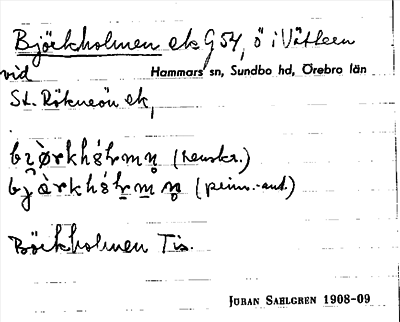 Björkholmen ek G 54, ö i Vättern
vid Hammars sn, Sundbo hd, Örebro län
St. Rökneön ek,
(renskr.)
(prim.-ant.)
Böckholmen Tis.
JÖRAN SAHLGREN 1908-09